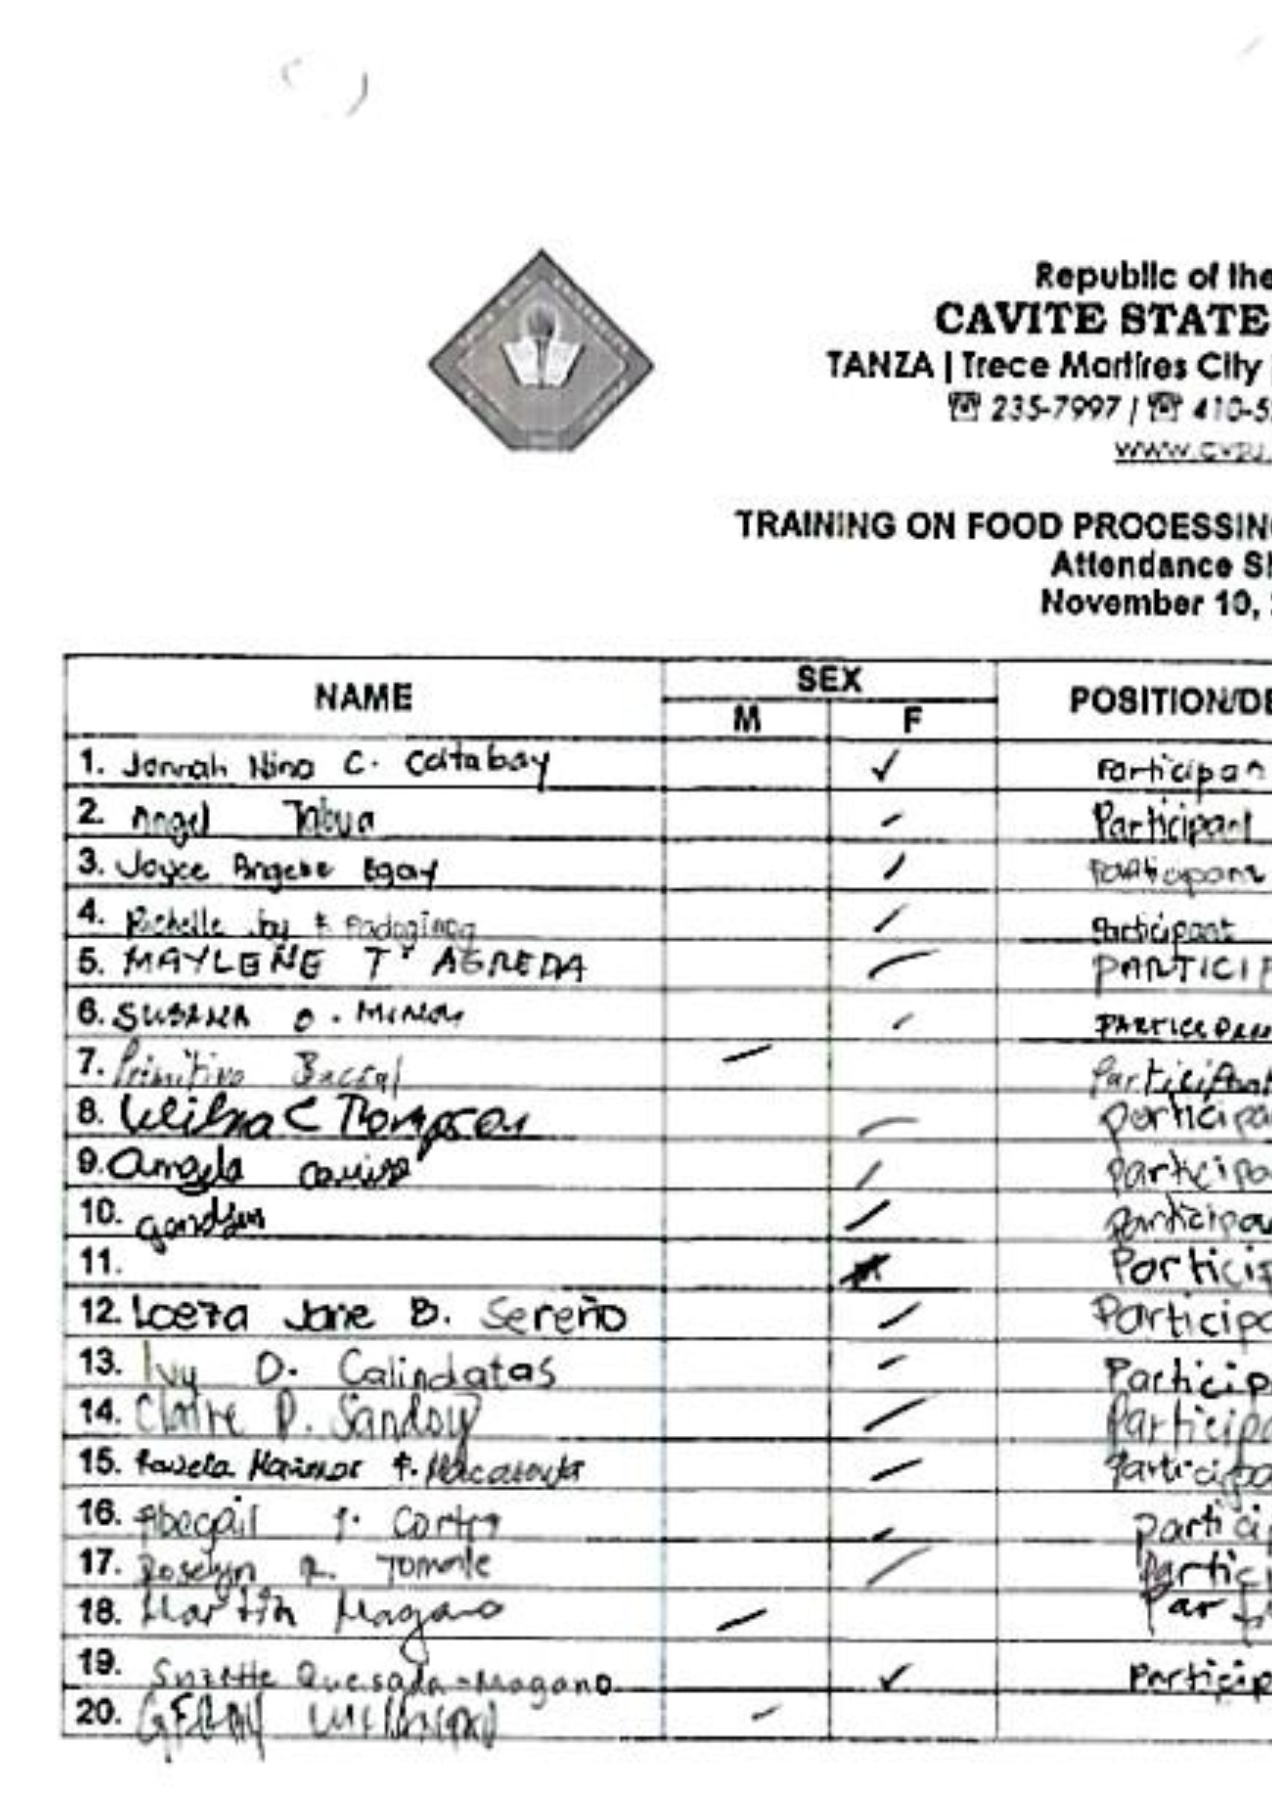 Republic of the
CAVITE STATE
TANZA | Trece Martires City |
☎ 235-7997 | ☎ 410-5
www.cvsu.
TRAINING ON FOOD PROCESSING
Attendance Sh
November 10,
NAME SEX POSITION/DE
M F
1. Jonnah Nina C. Catabay ✓ Participan
2. Angel Tabua Participant
3. Joyce Angelie Egay Participant
4. Richelle Joy F. Padoginog Participant
5. MAYLENE T. AGREDA PARTICIP
6. SUSANA O. Participan
7. Primitivo Participant
8. C Participa
9. Angela Participa
10. Participa
11. Particip
12. Loeza Jane B. Sereño Participa
13. Ivy D. Calindatas Particip
14. Claire D. Sandoy Participa
15. Participa
16. Abegail Cortez partici
17. Roselyn R. Tomonle Partici
18. Martin Magano Par
19. Suzette Quesada-Magano ✓ Particip
20.